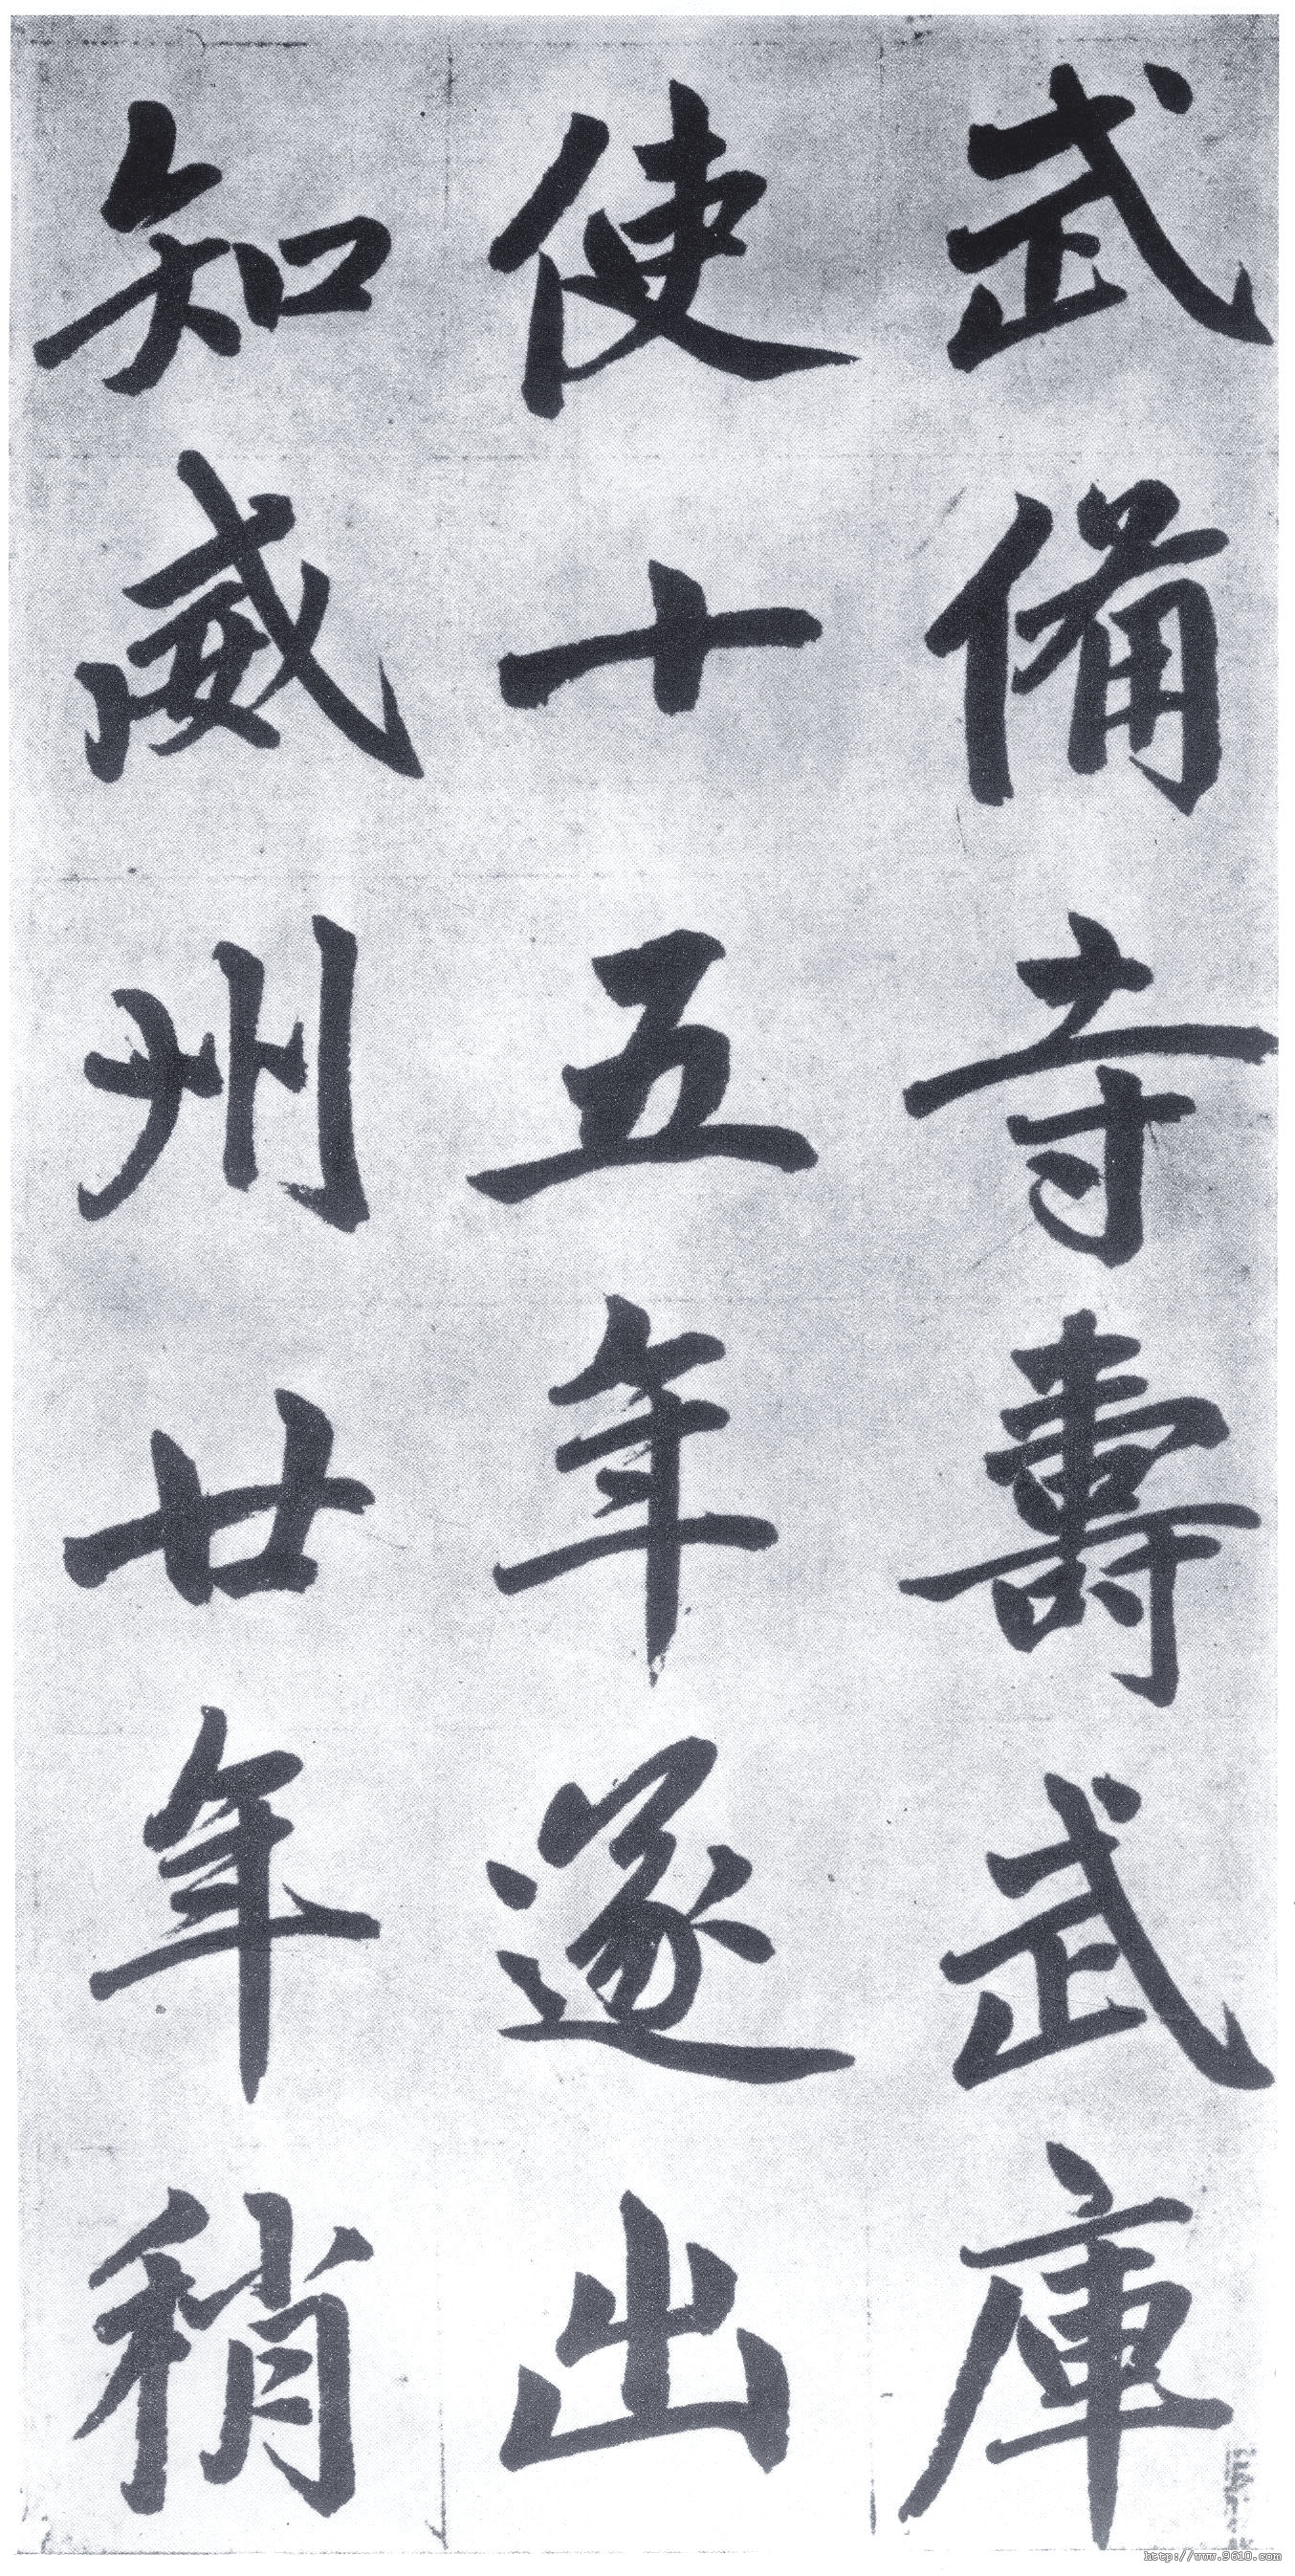 武備寺壽武庫
使十五年遂出
知威州廿年稍
http://www.9610.com